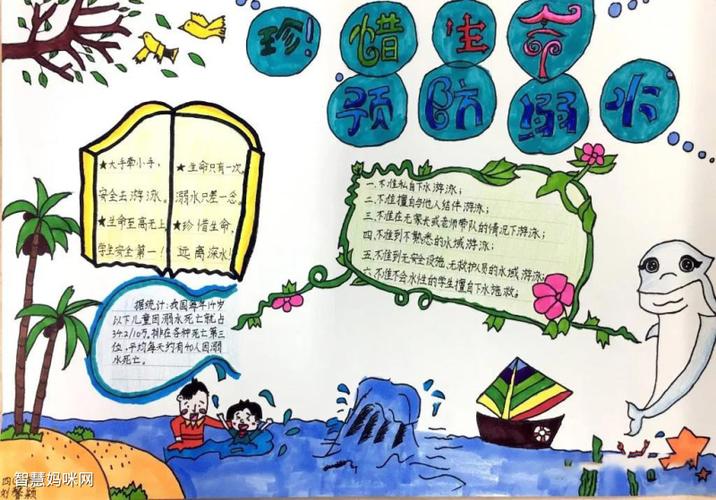 珍!惜生命
预防溺水
★大手牵小手,
安全去游泳。
★生命至高无上
学生安全第一!
★生命只有一次。
溺水只差一念。
★珍惜生命,
远离深水!
一.不准私自下水游泳;
二.不准擅自与他人结伴游泳;
三.不准在无家长或老师带队的情况下游泳;
四.不准到不熟悉的水域游泳;
五.不准到无安全设施、无救护人员的水域游泳;
六.不准不会水性的学生擅自下水施救。
据统计:我国每年14岁
以下儿童因溺水死亡就占
34.2/10万。排在各种死亡第三
位,平均每天约有40人因溺
水死亡。
智慧妈咪网